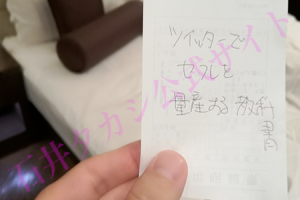 ツイッターで
セフレを
量産する教科書
石井タカシ公式サイト